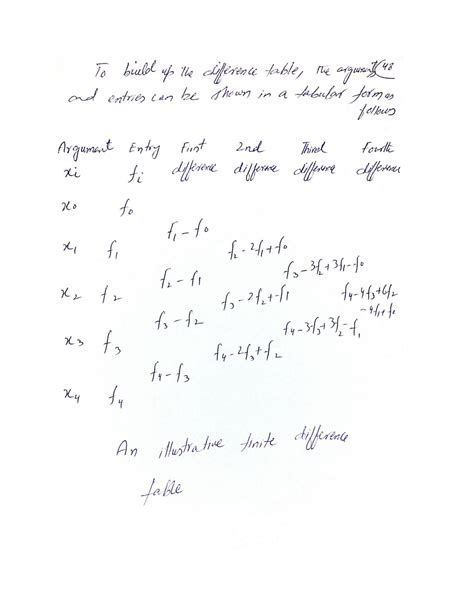 To build up the difference table, the arguments 48
and entries can be shown in a tabular form as
follows
Argument Entry First 2nd Third Fourth
xi fi difference difference difference difference
x0 f0
f1 - f0
x1 f1 f2 - 2f1 + f0
f2 - f1 f3 - 3f2 + 3f1 - f0
x2 f2 f3 - 2f2 + f1 f4 - 4f3 + 6f2
- 4f1 + f0
f3 - f2 f4 - 3f3 + 3f2 - f1
x3 f3 f4 - 2f3 + f2
f4 - f3
x4 f4
An illustrative finite difference
table